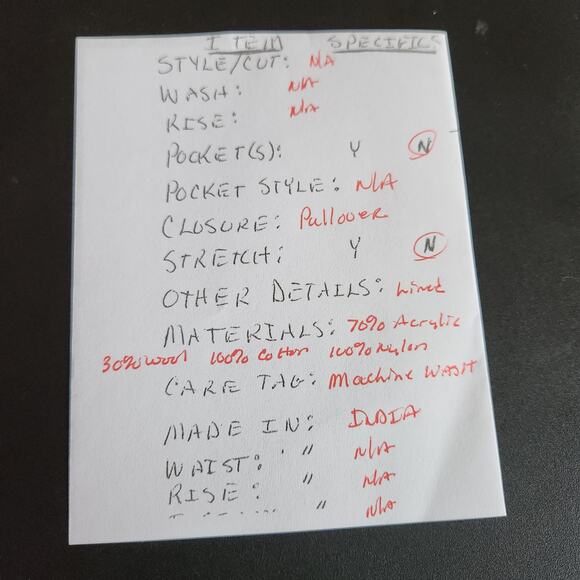 ITEM SPECIFICS
STYLE/CUT: N/A
WASH: N/A
RISE: N/A
POCKET(S): Y N
POCKET STYLE: N/A
CLOSURE: Pullover
STRETCH: Y N
OTHER DETAILS: Lined
MATERIALS: 70% Acrylic
30% Wool 100% Cotton 100% Nylon
CARE TAG: Machine WASH
MADE IN: INDIA
WAIST: " N/A
RISE: " N/A
" N/A